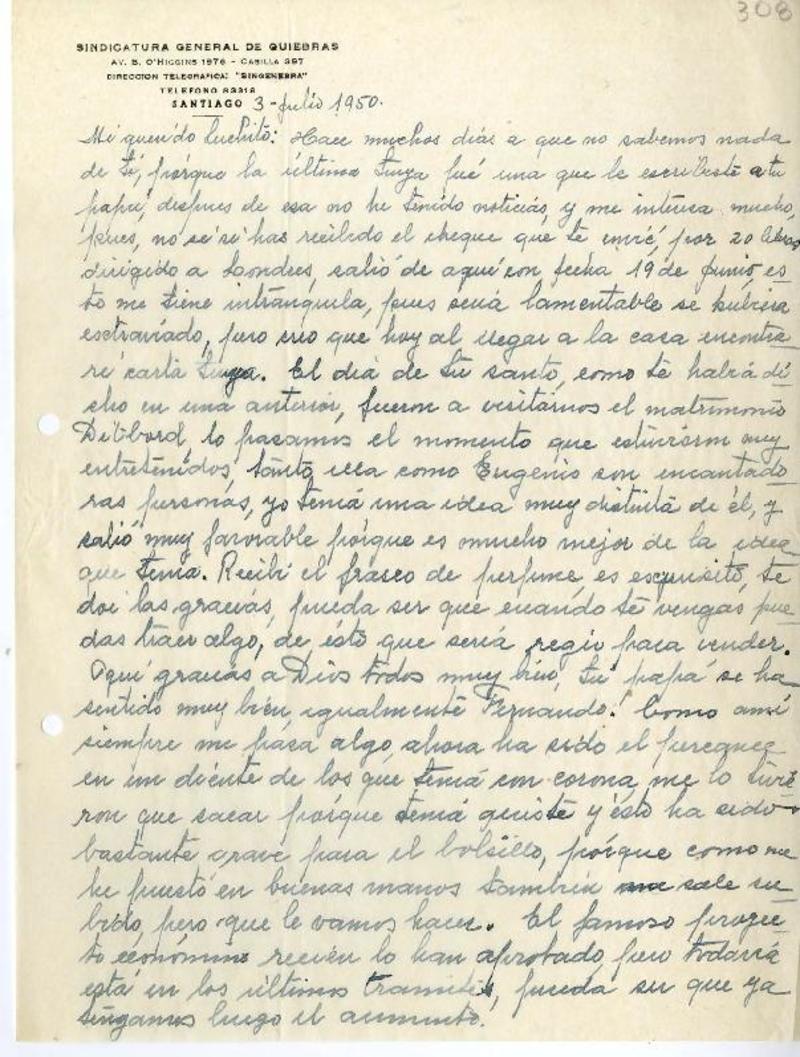 308
SINDICATURA GENERAL DE QUIEBRAS
AV. B. O'HIGGINS 1976 - CASILLA 397
DIRECCION TELEGRAFICA: "SINGENEBRA"
TELEFONO 83318
SANTIAGO 3-Julio 1950.
Mi querido Luchito: Hace muchos dias a que no sabemos nada
de ti, pórque la última tuya fué una que le escribiste a tu
papá, despues de esa no he tenido noticias, y me intersa mucho,
pues, no se si has recibido el cheque que te envié, por 20 libras
dirigido a Londres, salió de aqui con fecha 19 de Junio, es_
to me tiene intranquila, pues será lamentable se hubiera
esctraviado, pero creo que hoy al llegar a la casa encontra_
ré carta tuya. El dia de tu santo, como te habrá di_
cho en una anterior, fueron a visitarnos el matrimonio
Ditibord, lo pasamos el momento que estuvieron muy
entretenidos, tanto ella como Eugenio son encantado_
ras personas, yo tenia una idea muy distinta de él, y
salió muy favorable pórque es mucho mejor de la idea
que tenia. Recibi el frasco de perfume, es esquisito, te
doi las gracias, pueda ser que cuando te vengas pue_
das traer algo, de ésto que seria regio para vender.
Aqui gracias a Dios todos muy bien, tu papá se ha
sentido muy bien, igualmente Fernando! Como a mi
siempre me pasa algo, ahora ha sido el percance
en un diente de los que tenia con corona, me lo tuvie_
ron que sacar pórque tenia quiste y ésto ha sido
bastante grave para el bolsillo, pórque como me
he puesto en buenas manos tambien sale su_
bido, pero que le vamos hacer. El famoso proyec_
to económico recien lo han aprobado, pero todavia
está en los últimos tramites, pueda ser que ya
tengamos luego el aumento.